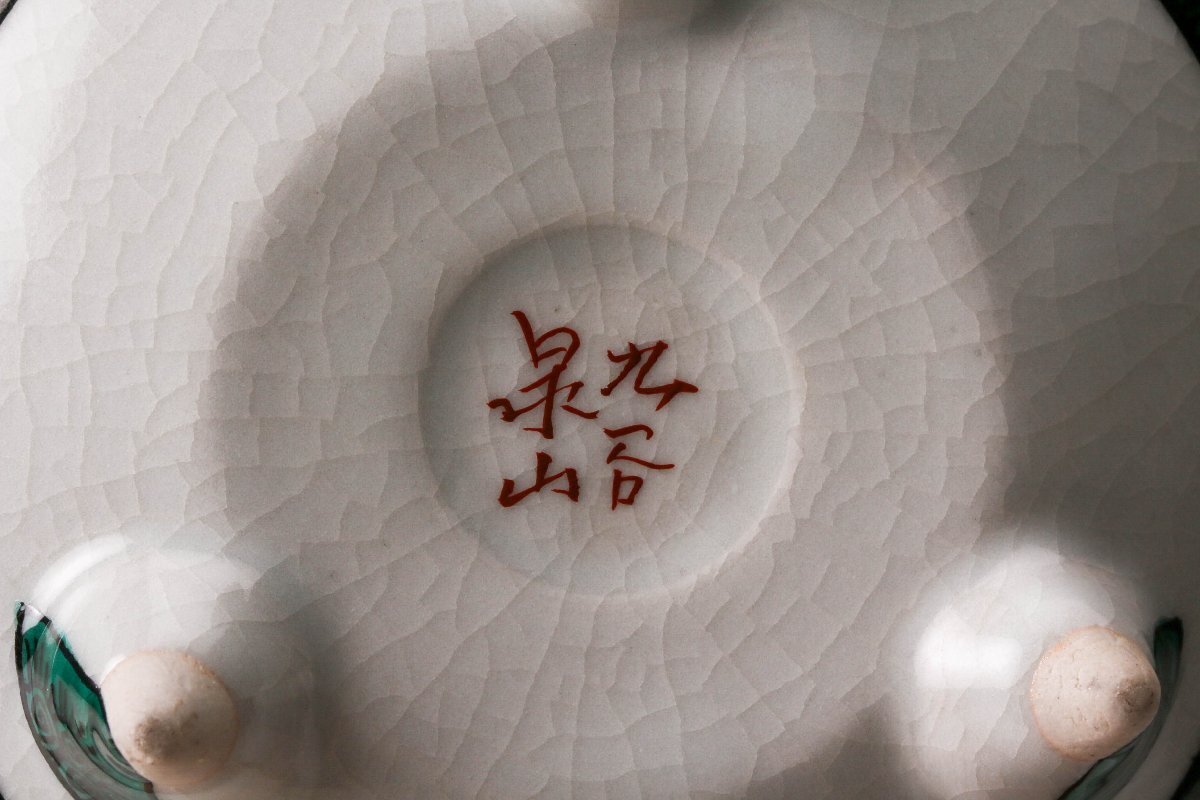 九谷
泉山